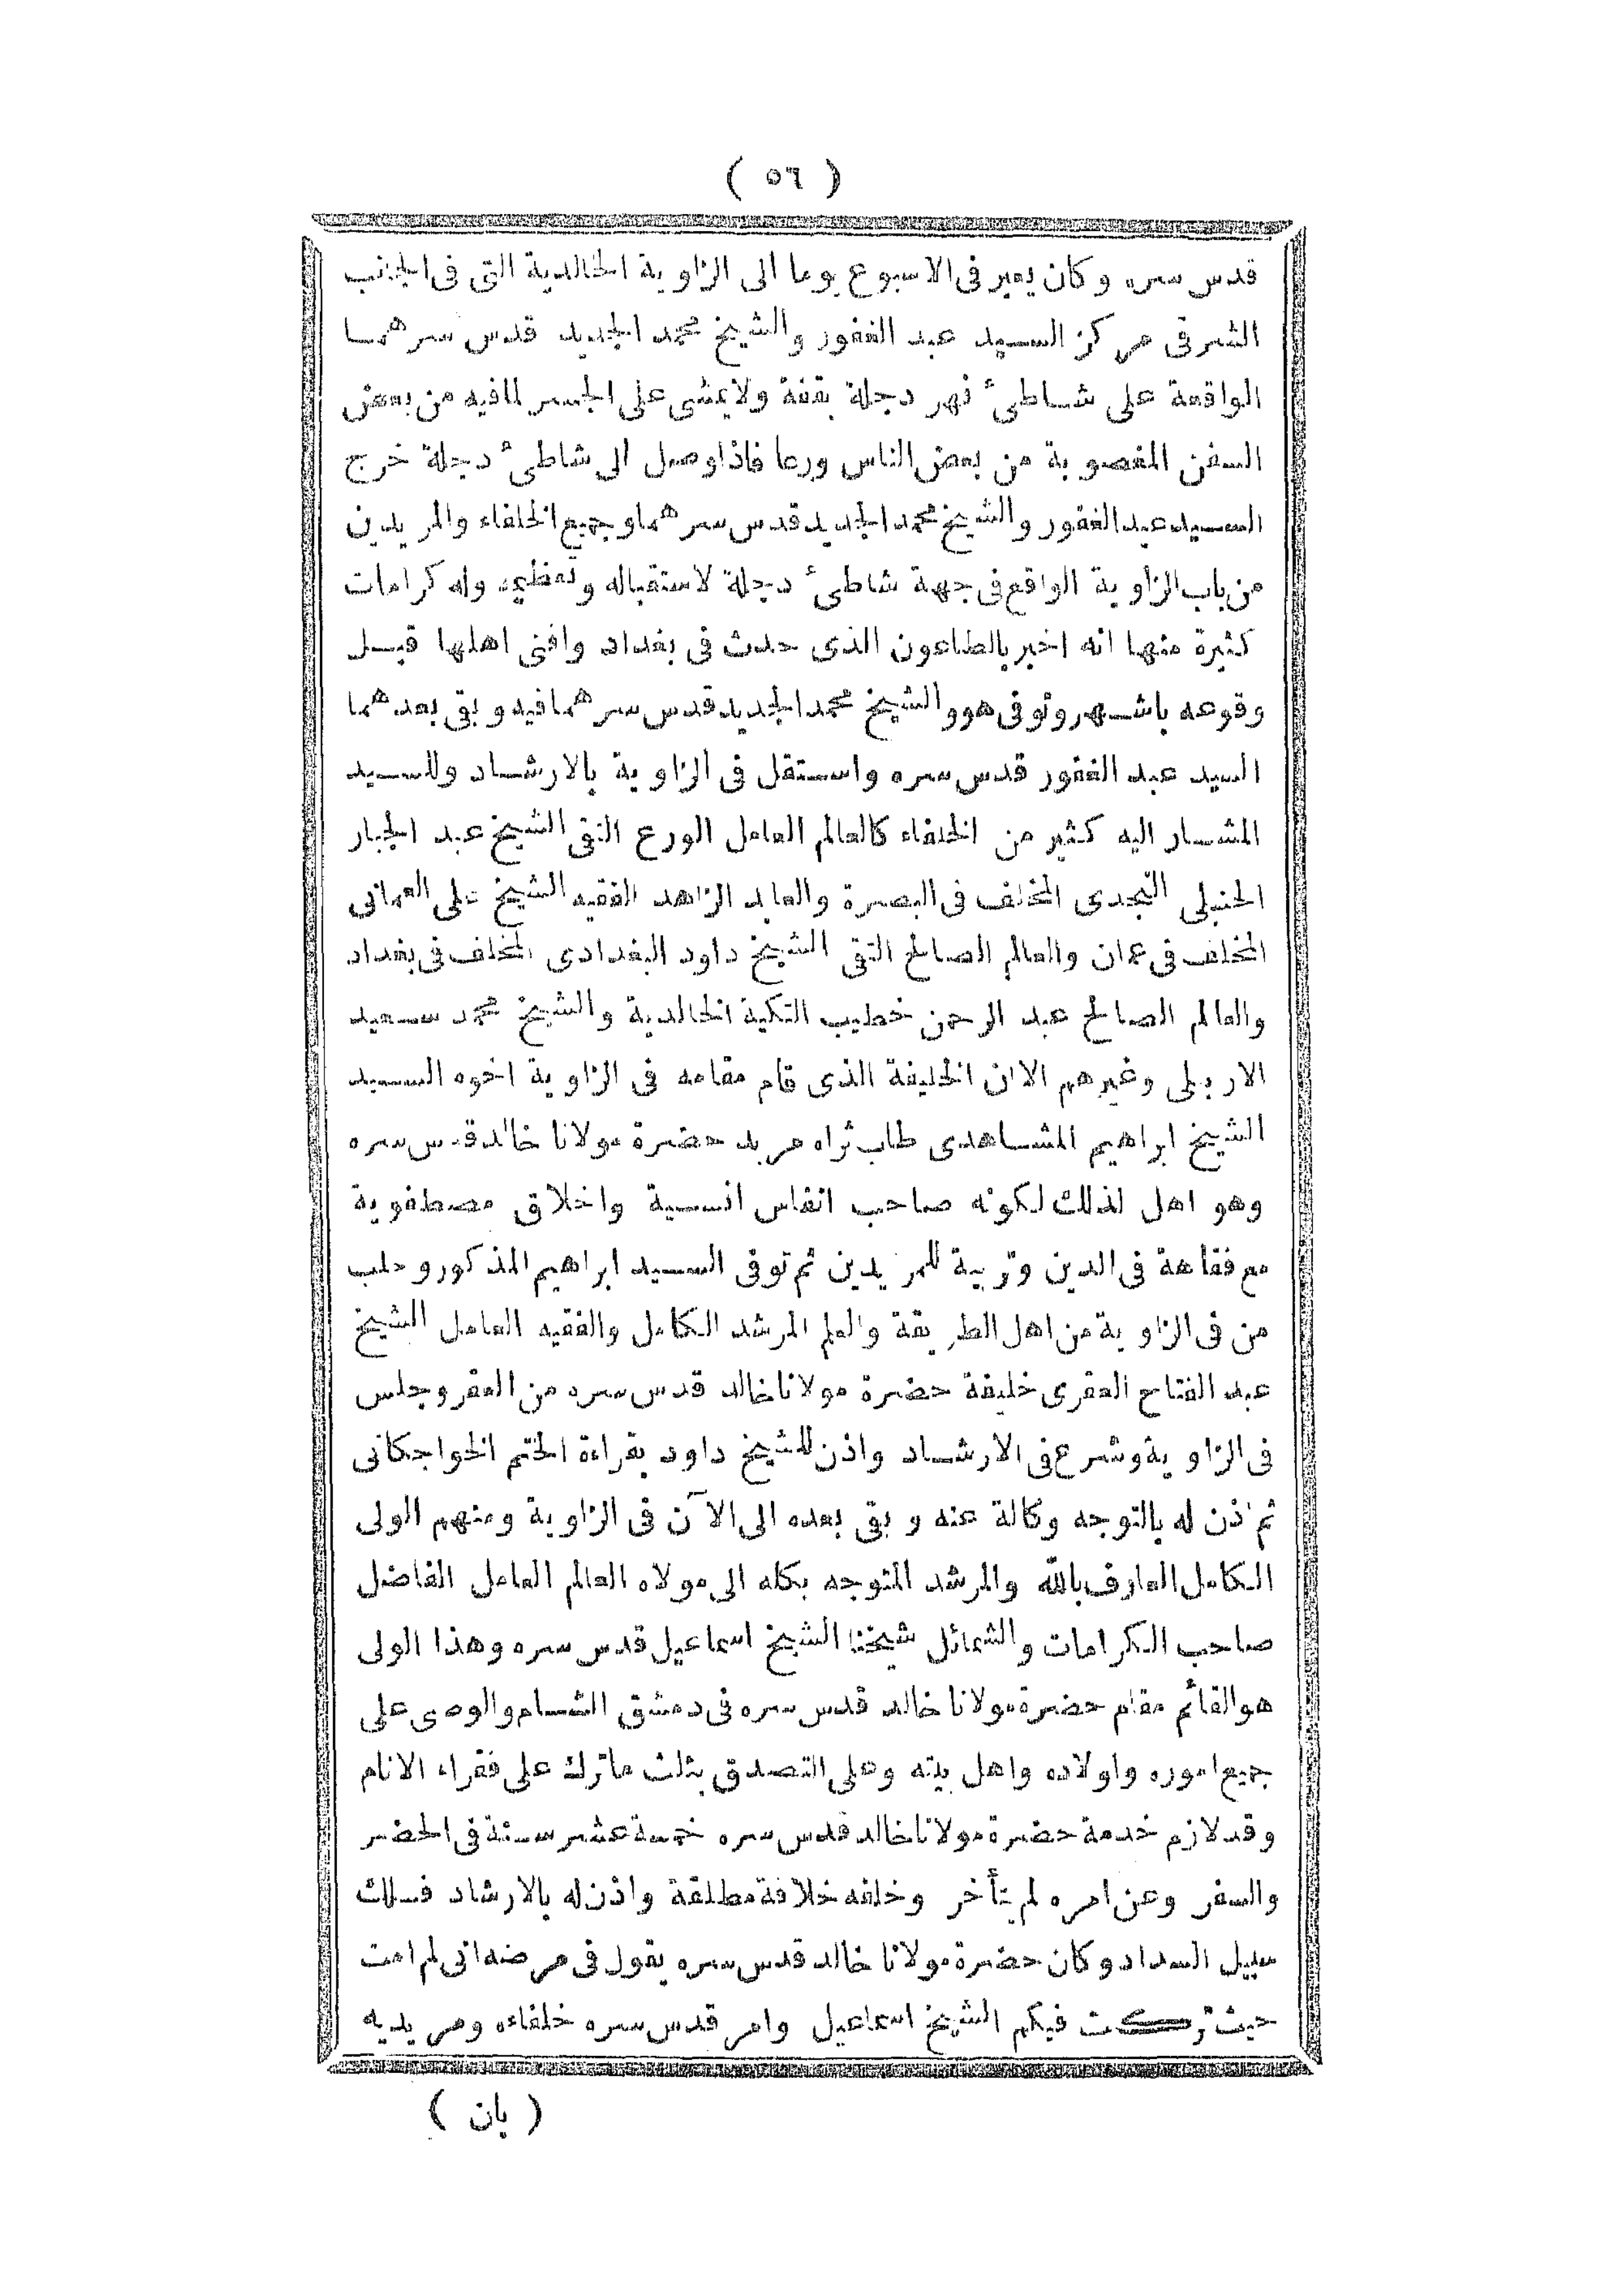 ( ٥٦ )
قدس سره وكان يعبر فى الاسبوع يوما الى الزاوية الخالدية التى فى الجانب
الشرقى مركز السيد عبد الغفور والشيخ محمد الجديد قدس سرهما
الواقعة على شاطئ نهر دجلة بقفة ولايمشى على الجسر لمافيه من بعض
السفن المغصوبة من بعض الناس ورعا فاذا وصل الى شاطئ دجلة خرج
السيد عبد الغفور والشيخ محمد الجديد قدس سرهما وجميع الخلفاء والمريدين
من باب الزاوية الواقع فى جهة شاطئ دجلة لاستقباله وتعظيمه وله كرامات
كثيرة منها انه اخبر بالطاعون الذى حدث فى بغداد وافنى اهلها قبل
وقوعه باشهر وتوفى هو والشيخ محمد الجديد قدس سرهما فيه وبقى بعدهما
السيد عبد الغفور قدس سره واستقل فى الزاوية بالارشاد وللسيد
المشار اليه كثير من الخلفاء كالعالم العامل الورع التقى الشيخ عبد الجبار
الحنبلى النجدى المخلف فى البصرة والعابد الزاهد الفقيه الشيخ على العمانى
المخلف فى عمان والعالم الصالح التقى الشيخ داود البغدادى المخلف فى بغداد
والعالم الصالح عبد الرحمن خطيب التكية الخالدية والشيخ محمد سعيد
الاربلى وغيرهم الا ان الخليفة الذى قام مقامه فى الزاوية اخوه السيد
الشيخ ابراهيم المشاهدى طاب ثراه مريد حضرة مولانا خالد قدس سره
وهو اهل لذلك لكونه صاحب انفاس انسية واخلاق مصطفوية
مع فقاهة فى الدين وتربية للمريدين ثم توفى السيد ابراهيم المذكور وطلب
من فى الزاوية من اهل الطريقة والعلم المرشد الكامل والفقيه العامل الشيخ
عبد الفتاح العقرى خليفة حضرة مولانا خالد قدس سره من العقر وجلس
فى الزاوية وشرع فى الارشاد واذن للشيخ داود بقراءة الختم الخواجكانى
ثم اذن له بالتوجه وكالة عنه وبقى بعده الى الآن فى الزاوية ومنهم الولى
الكامل العارف بالله والمرشد المتوجه بكله الى مولاه العالم العامل الفاضل
صاحب الكرامات والشمائل شيخنا الشيخ اسماعيل قدس سره وهذا الولى
هو القائم مقام حضرة مولانا خالد قدس سره فى دمشق الشام والوصى على
جميع اموره واولاده واهل بيته وعلى التصدق بثلث ماترك على فقراء الانام
وقد لازم خدمة حضرة مولانا خالد قدس سره خمسة عشر سنة فى الحضر
والسفر وعن امره لم يتأخر وخلفه خلافة مطلقة واذن له بالارشاد فسلك
سبيل السداد وكان حضرة مولانا خالد قدس سره يقول فى مرضه انى لم امت
حيث تركت فيكم الشيخ اسماعيل وامر قدس سره خلفاءه ومريديه
( بان )